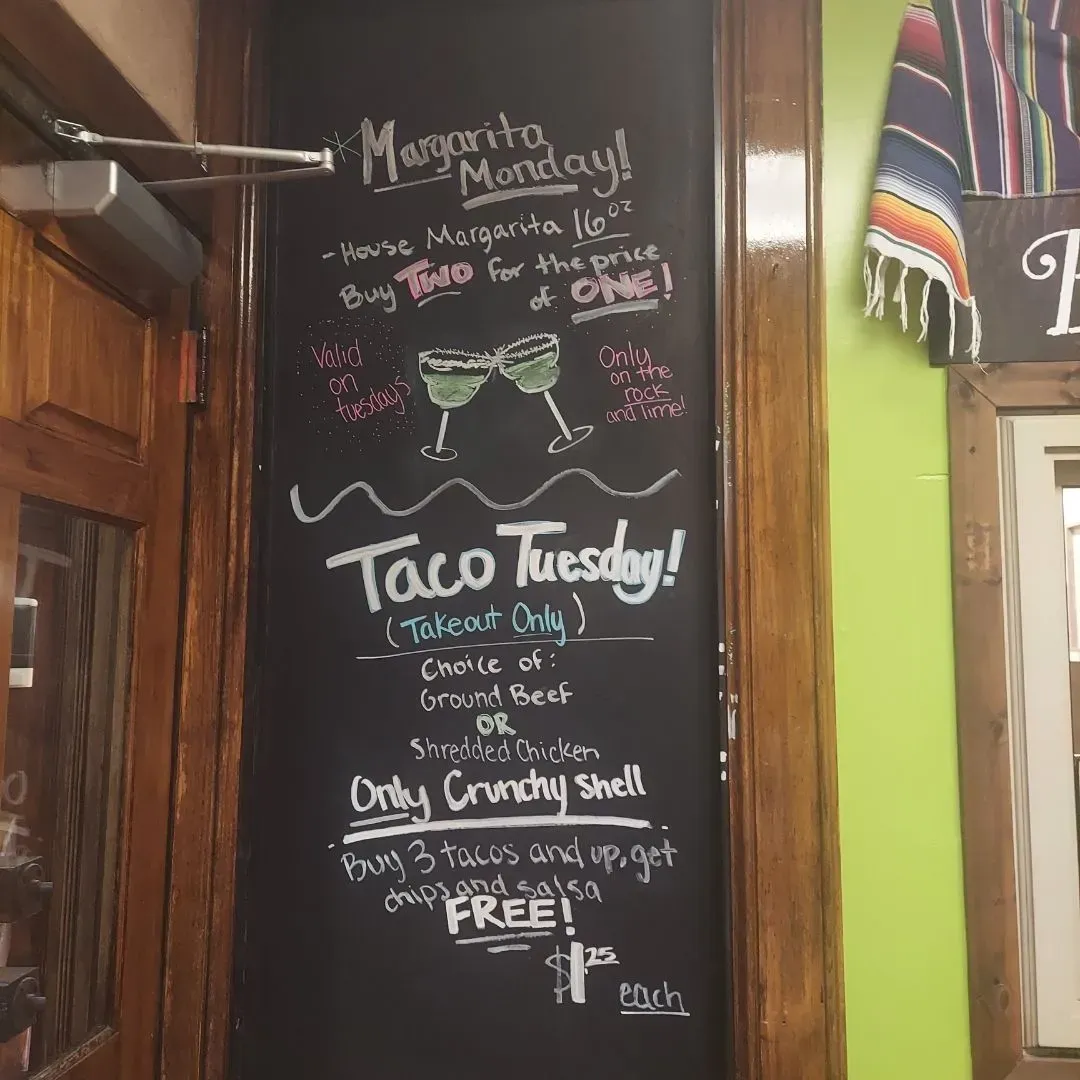 Margarita
Monday!
- House Margarita 16oz
Buy TWO for the price
of ONE!
Valid
on
tuesdays
Only
on the
rock
and lime!
Taco Tuesday!
(Takeout Only)
Choice of:
Ground Beef
OR
Shredded Chicken
Only Crunchy Shell
Buy 3 tacos and up, get
chips and salsa
FREE!
$1.25
each